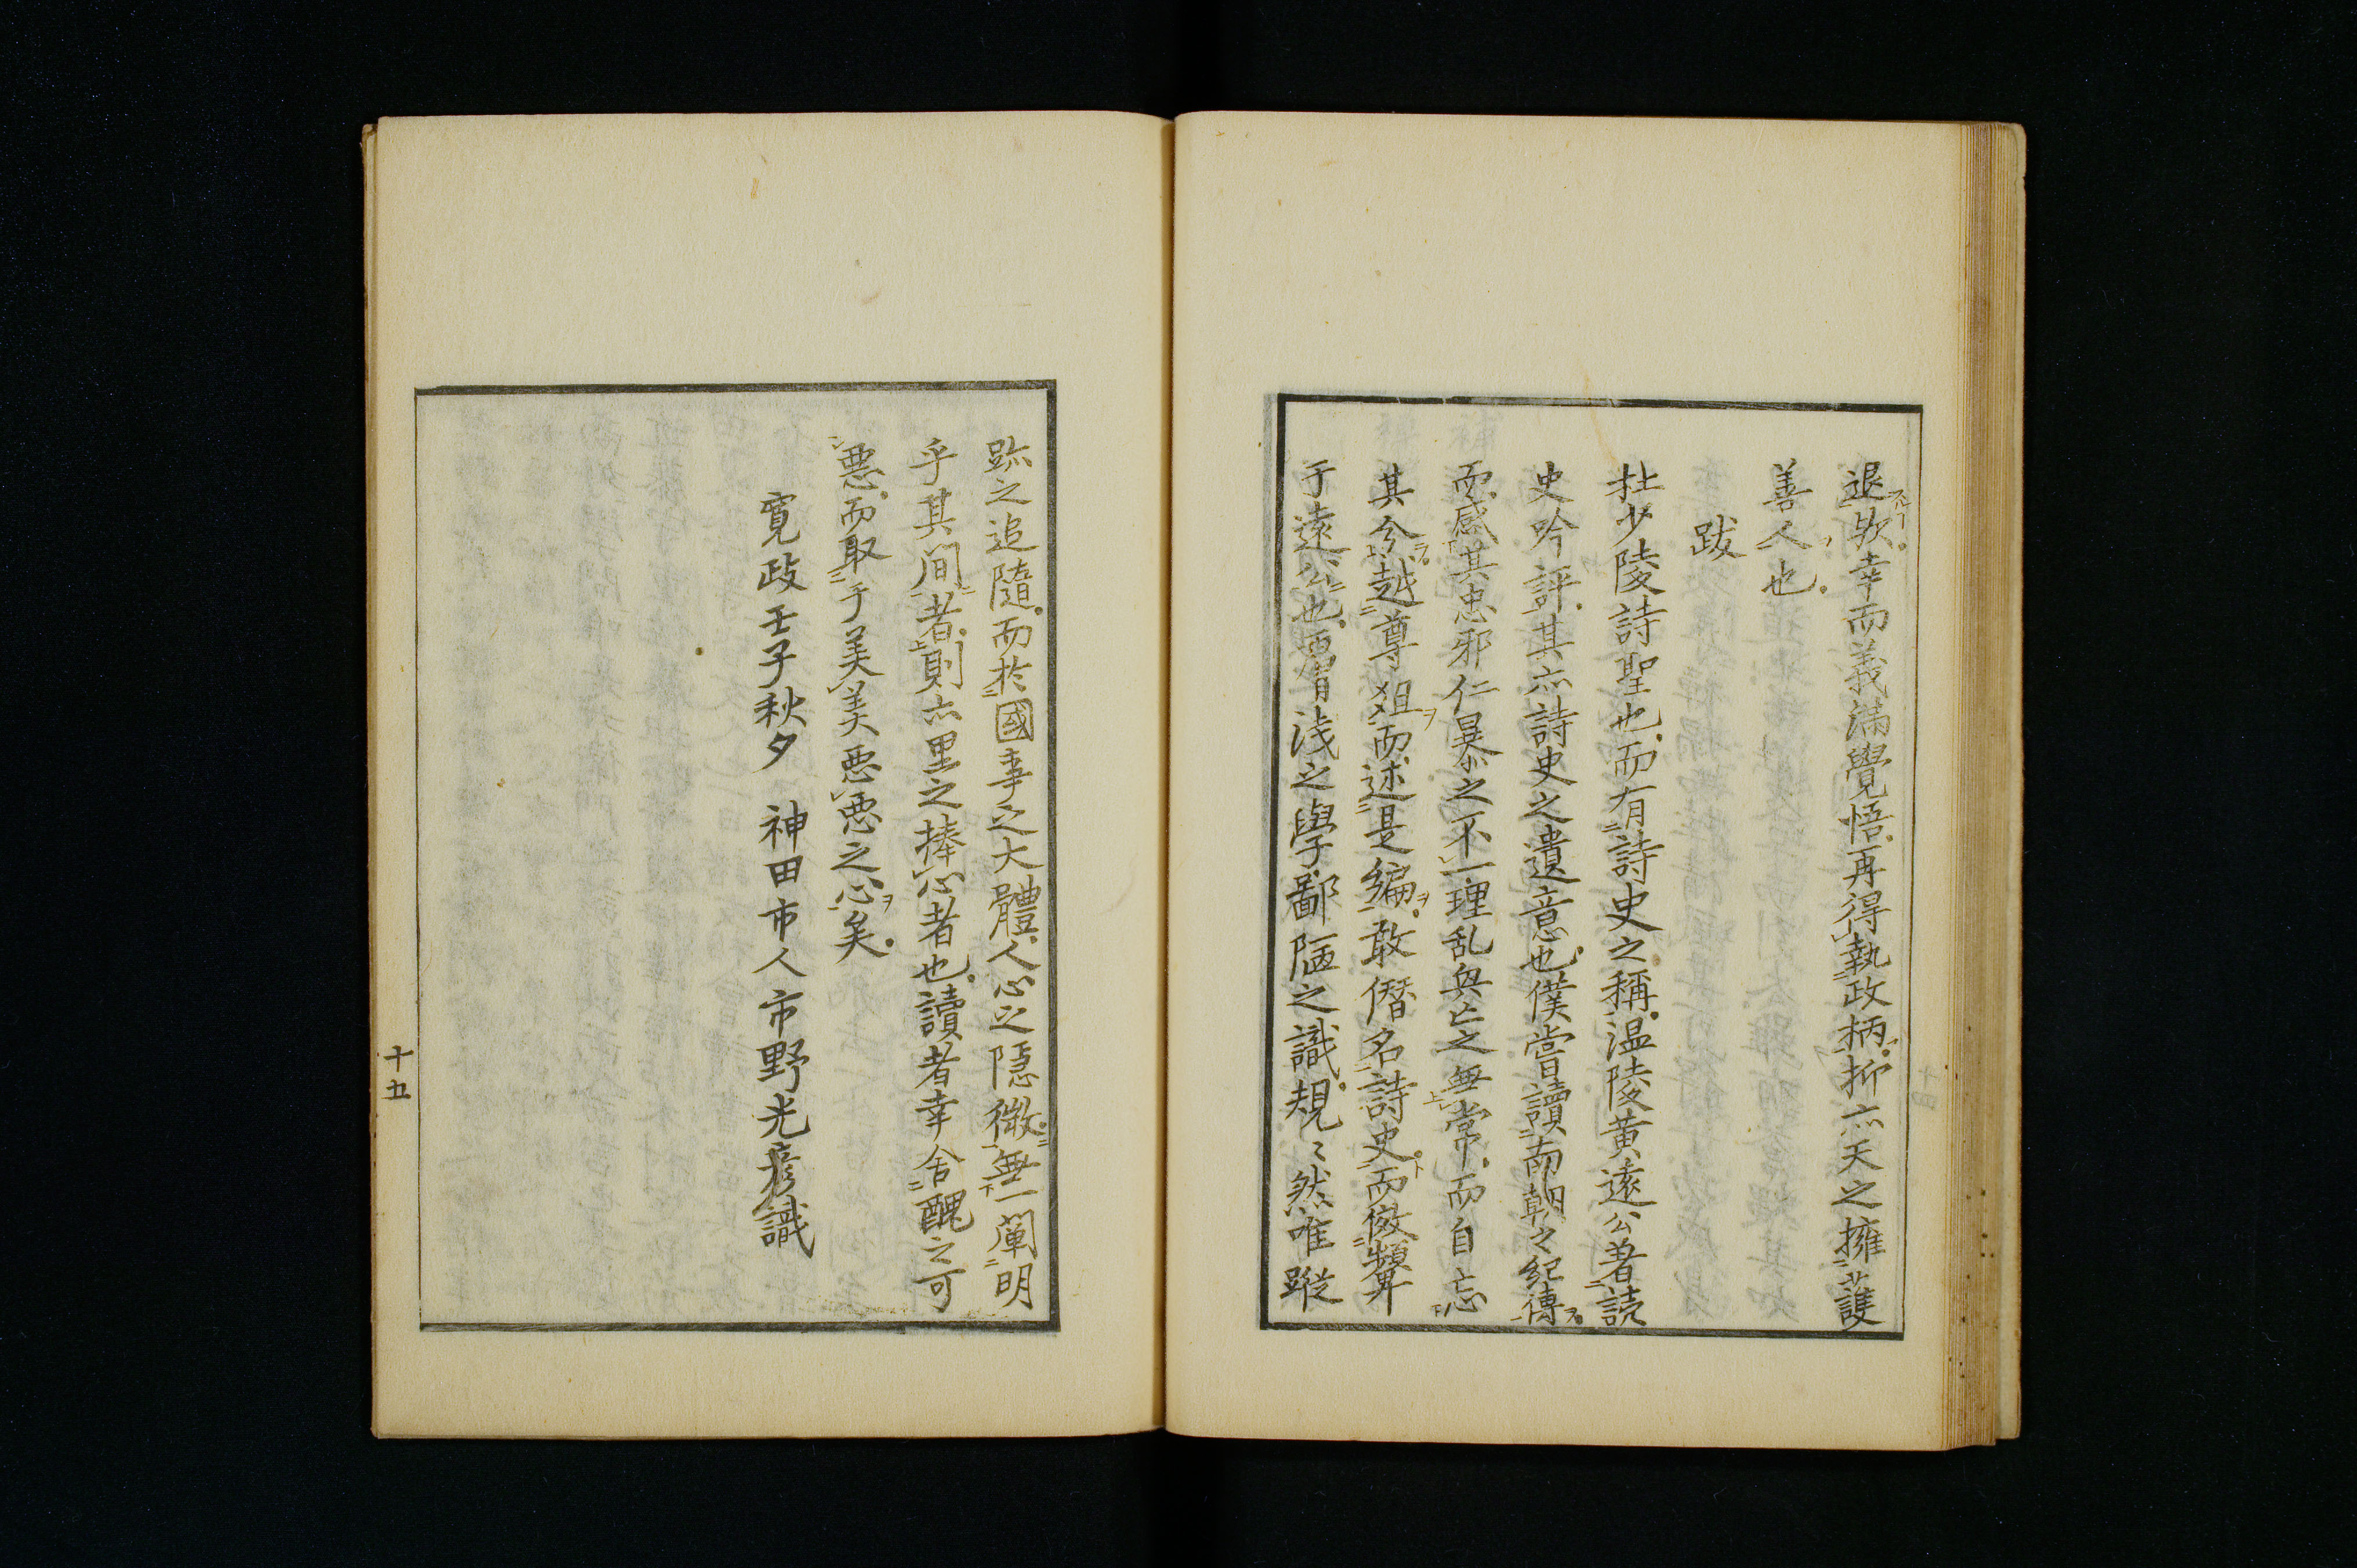 退欤幸而義満覺悟再得執政柄抑亦天之擁護
善人也
跋
杜少陵詩聖也而有詩史之稱温陵黄遠公著読
史吟評其亦詩史之遺意也僕嘗讀南朝之紀傳
而感其忠邪仁暴之不一理乱興亡之無常而自忘
其分越尊俎而述是編敢僭名詩史而傚顰
于遠公也胃浅之學鄙陋之識規〻然唯蹤
跡之追隨而於國事之大體人心之隠微無一闡明
乎其間者則亦里之捧心者也讀者幸舎醜之可
悪而取于美美悪悪之心矣
寛政壬子秋夕 神田市人市野光彦識
十五